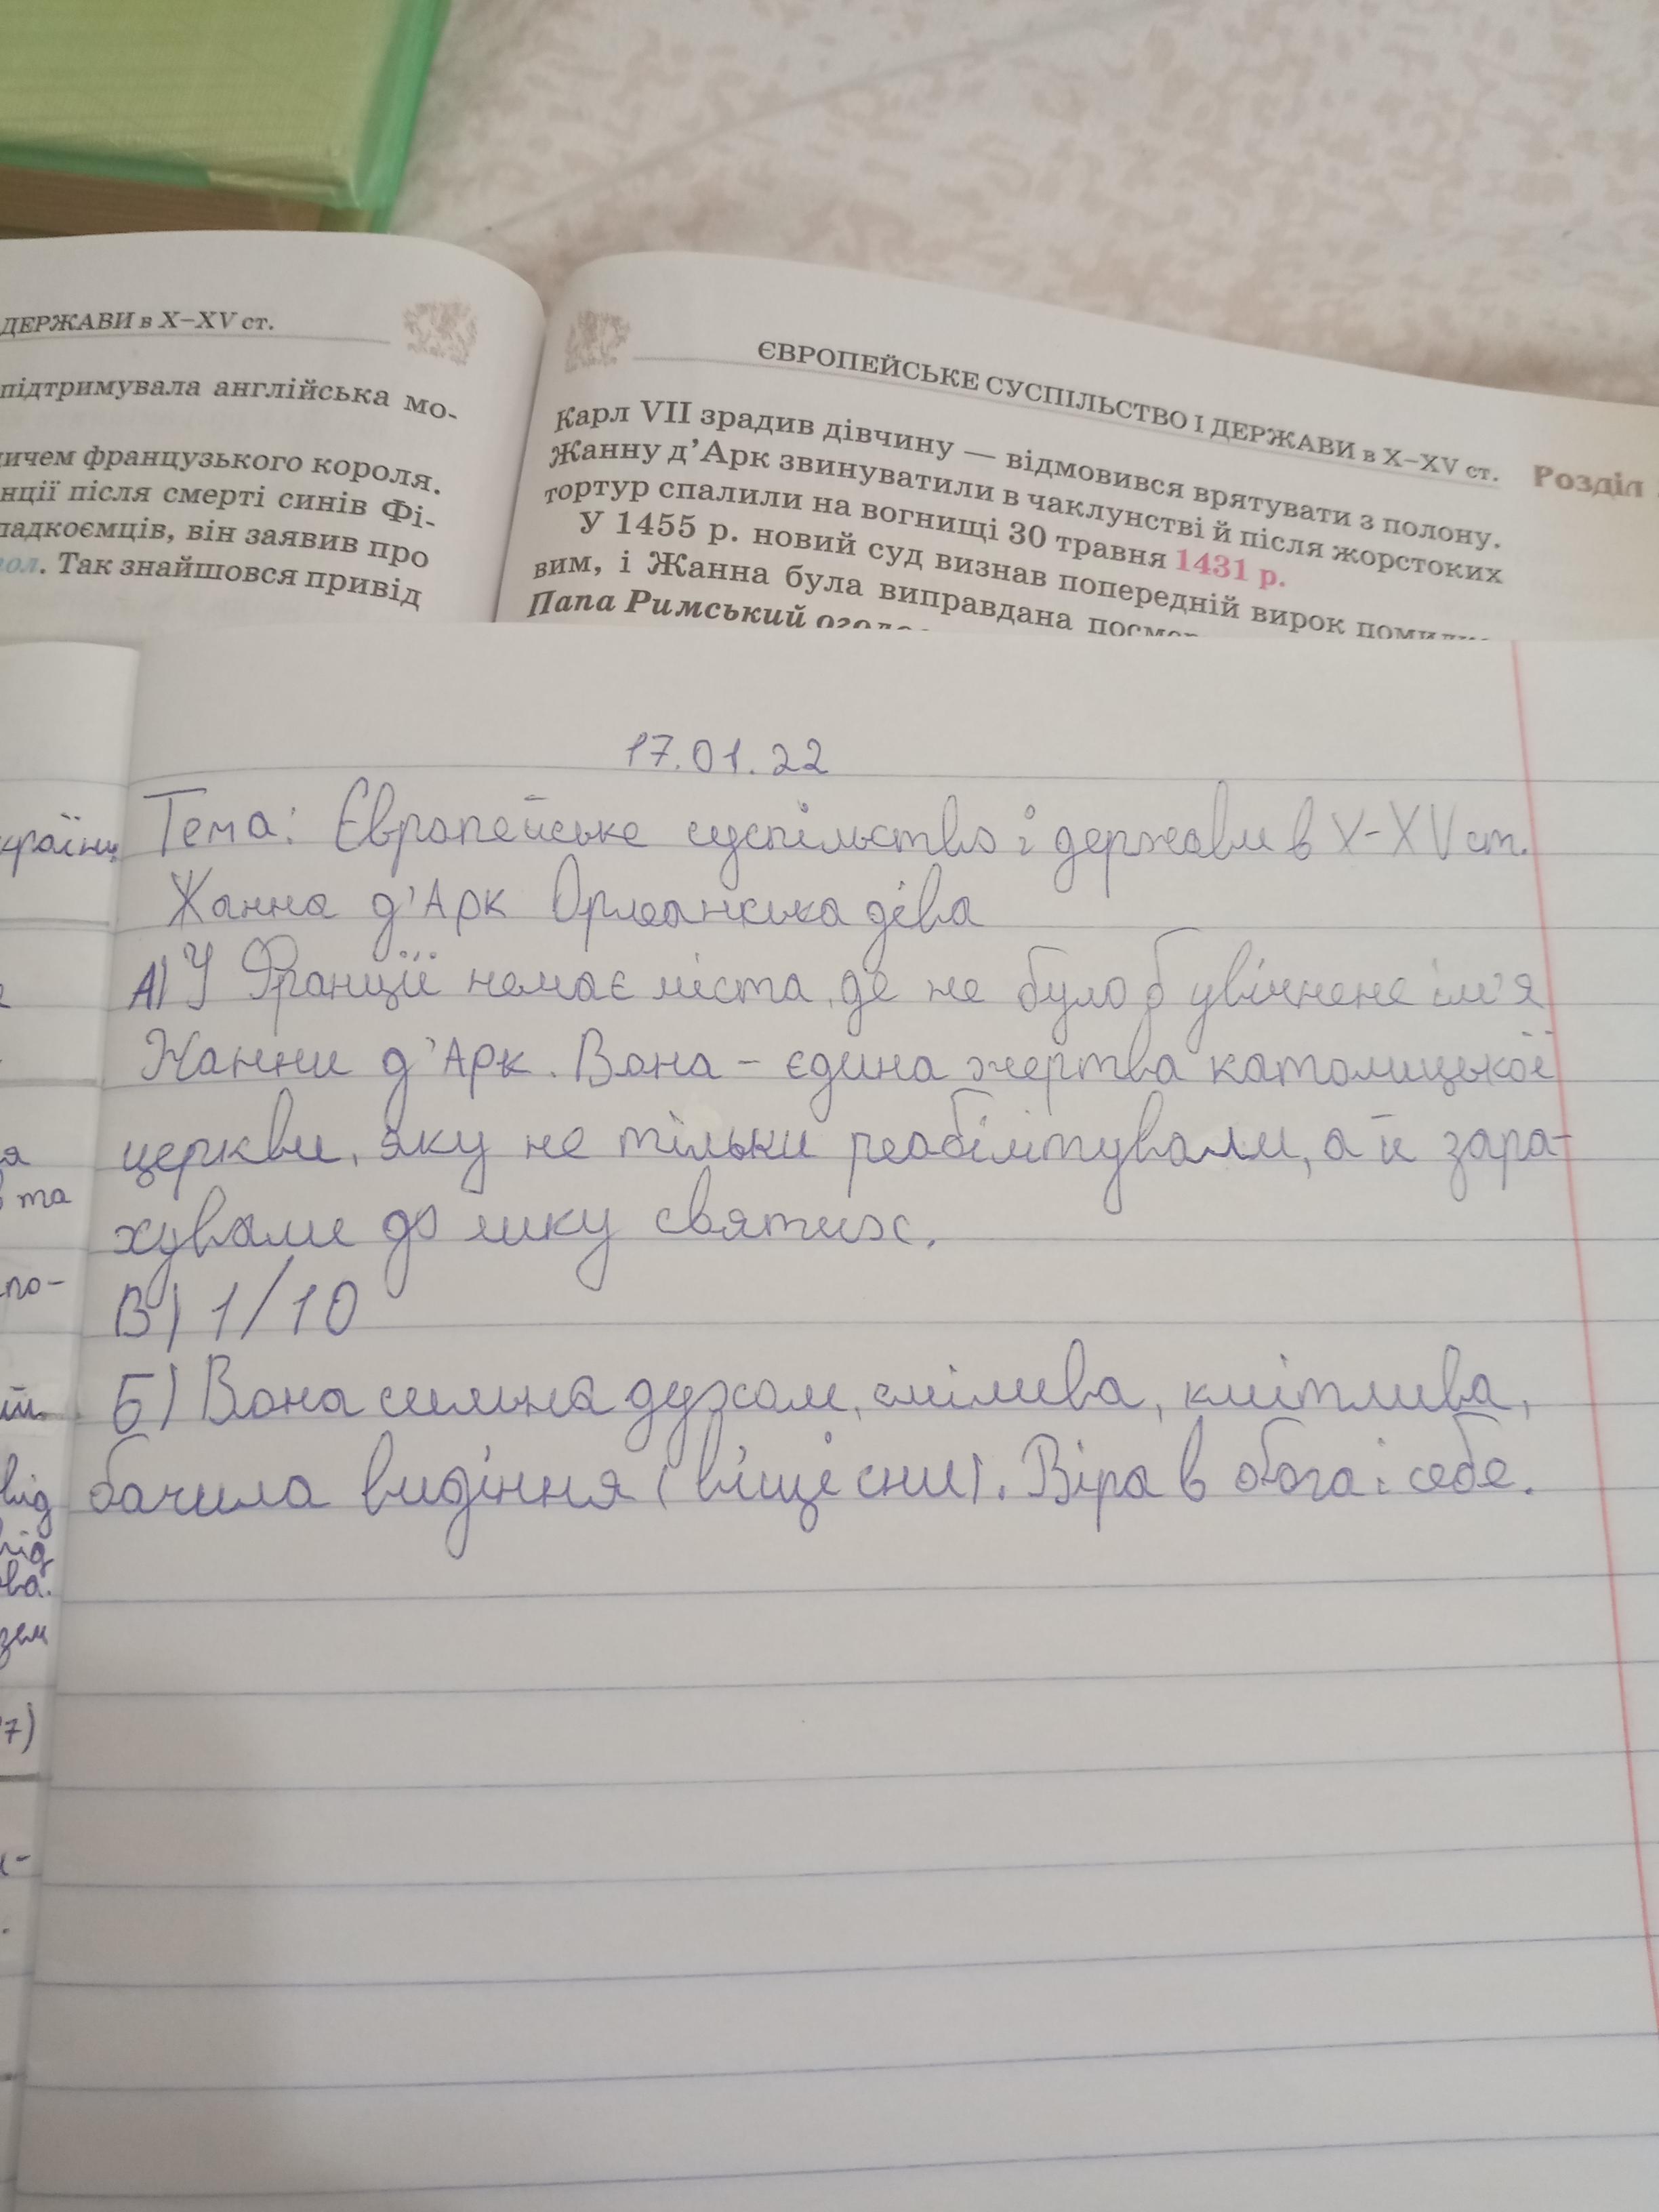 ДЕРЖАВИ в X–XV ст.
підтримувала англійська мо-
французького короля.
після смерті синів Фі-
він заявив про
Так знайшовся привід
ЄВРОПЕЙСЬКЕ СУСПІЛЬСТВО І ДЕРЖАВИ в X–XV ст.
Розділ
Карл VII зрадив дівчину — відмовився врятувати з полону.
Жанну д’Арк звинуватили в чаклунстві й після жорстоких
тортур спалили на вогнищі 30 травня 1431 р.
У 1455 р. новий суд визнав попередній вирок
вим, і Жанна була виправдана
Папа Римський
17.01.22
Тема: Європейське суспільство і держави в X-XV ст.
Жанна д'Арк Орлеанська діва
А) У Франції немає міста, де не було б увічнене ім'я
Жанни д'Арк. Вона – єдина жертва католицької
церкви, яку не тільки реабілітували, а й зара-
хували до лику святих.
В) 1/10
Б) Вона сильна духом, смілива, кмітлива,
бачила видіння (віщі сни). Віра в бога і себе.
та
по-
від
ва.
7)